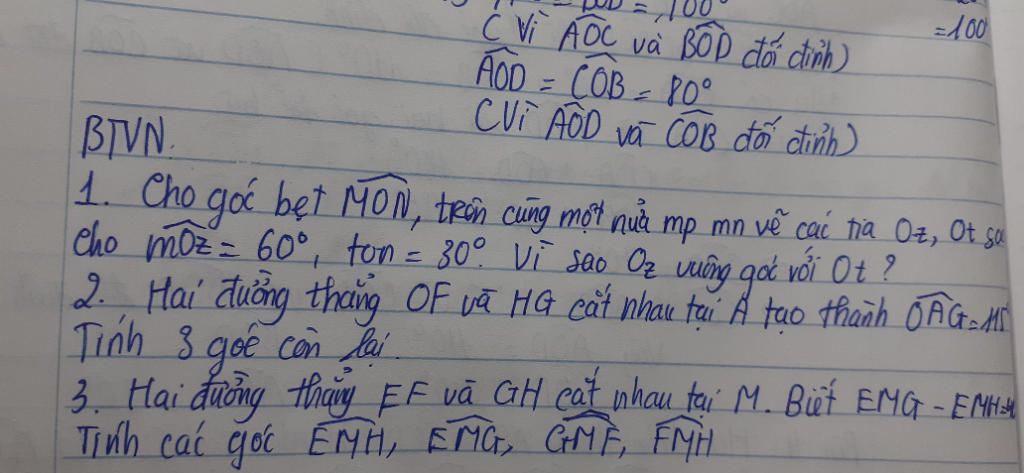 = 100°
= 100
( Vì AOC và BOD đối đỉnh)
AOD = COB = 80°
( Vì AOD và COB đối đỉnh)
BTVN.
1. Cho góc bẹt MON, trên cùng một nửa mp mn vẽ các tia Oz, Ot sa
cho mOz = 60°, ton = 30°. Vì sao Oz vuông góc với Ot ?
2. Hai đường thẳng OF và HG cắt nhau tại A tạo thành OAG = 115
Tính 3 góc còn lại.
3. Hai đường thẳng EF và GH cắt nhau tại M. Biết EMG - EMH =
Tính các góc EMH, EMG, GMF, FMH